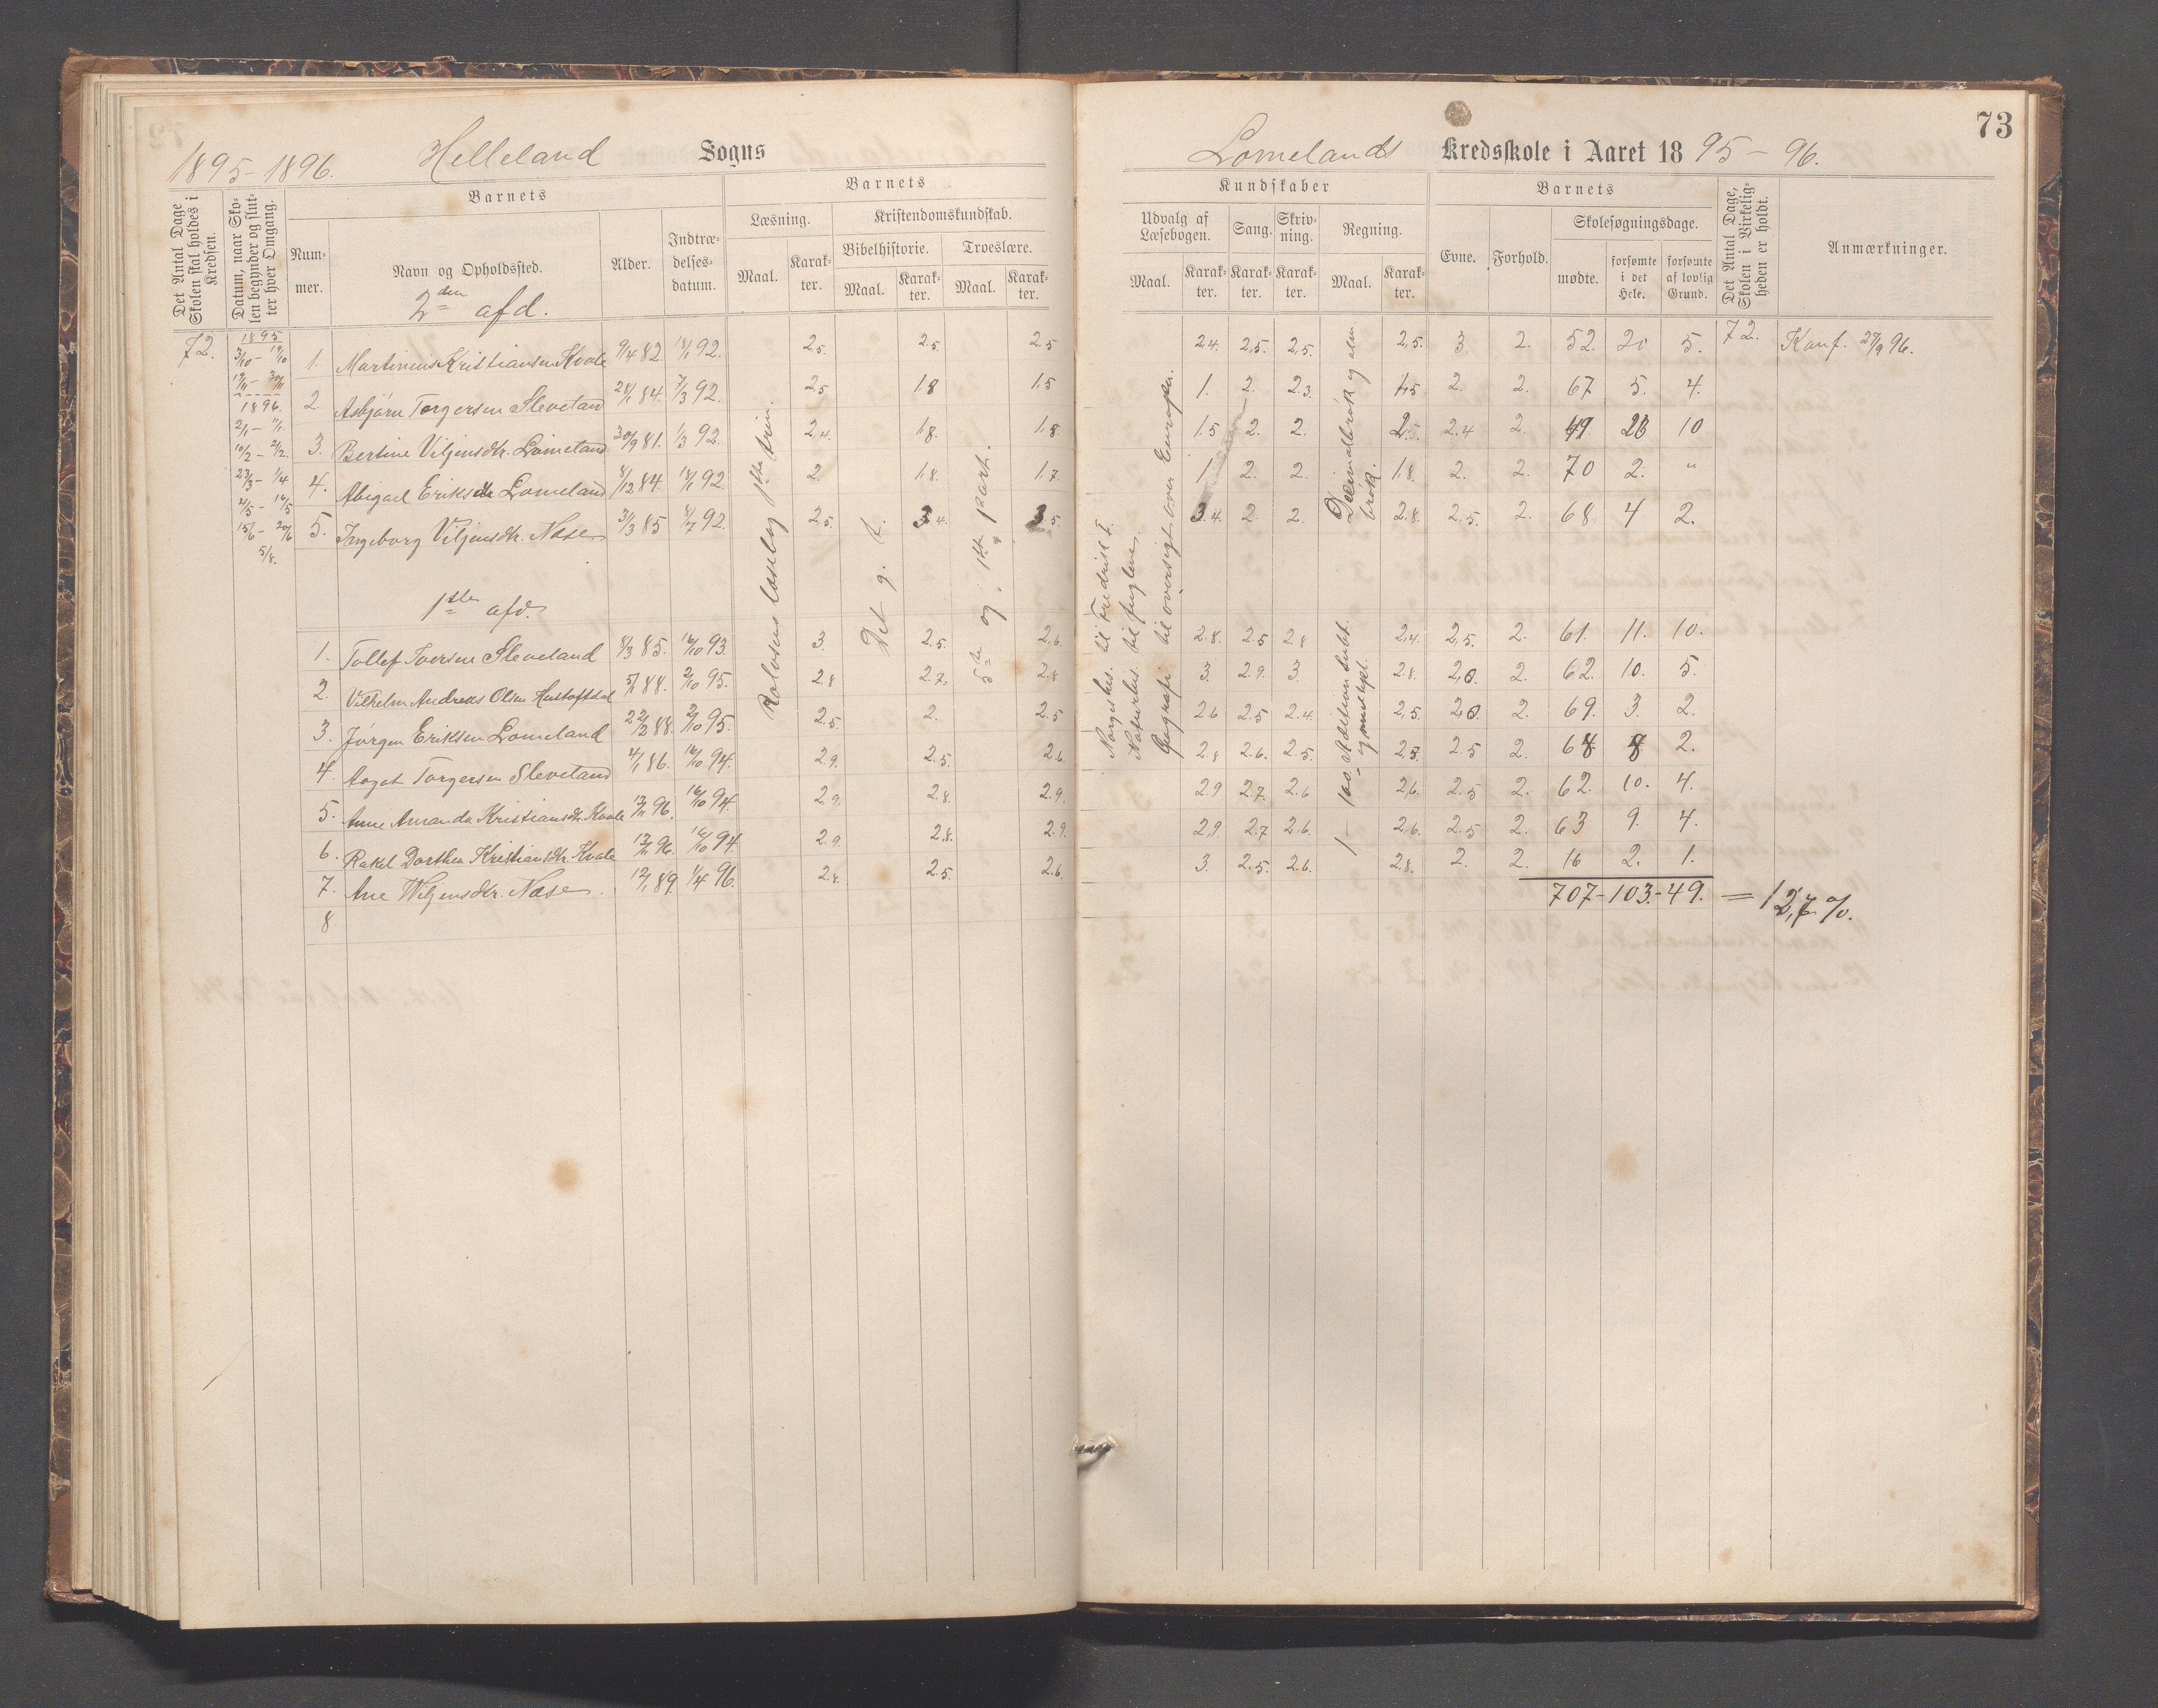 1895-1896. Helleland Sogns
Det Antal Dage Skolen skal holdes i Kredsen.
Datum, naar Skolen begynder og slutter hver Omgang.
Barnets
Nummer.
Navn og Opholdssted.
Alder.
Indtrædelsesdatum.
Barnets
Læsning.
Maal.
Karakter.
Kristendomskundskab.
Bibelhistorie.
Maal.
Karakter.
Troeslære.
Maal.
Karakter.
2den afd.
72. 1895
3/10 - 19/10
19/11 - 30/11
1896.
2/1 - 11/1.
10/2 - 21/2.
23/3 - 1/4
4/5 - 16/5
15/6 - 20/6
5/8.
1. Martinius Kristiansen Kvale 9/4 82. 18/1 92. 2.5. 2.5. 2.5
2. Asbjørn Torgersen Sleveland 28/1 84. 7/3 92. 2.5 1.8 1.5
3. Bertine Viljensdtr. Lomeland 30/9 81. 1/3 92. 2.4. 1.8. 1.8.
4. Abigael Eriksdtr Lomeland 8/12 84. 18/1 92. 2. 1.8. 1.7.
5. Ingeborg Viljensdtr. Nase 31/3 85 4/7 92. 2.5. 3.4. 3.5.
1ste afd.
1. Tollef Iversen Sleveland 8/3 85. 16/10 93. 3. 2.5. 2.6.
2. Vilhelm Andreas Olsen 5/1 88. 2/10 95. 2.8 2.7. 2.8
3. Jørgen Eriksen Lomeland 22/2 88. 2/10 95. 2.5. 2. 2.5
4. Aagot Torgersen Sleveland 4/1 86. 16/10 94. 2.9. 2.5. 2.6.
5. Anne Amanda Kristiansdtr. Kvale 12/11 96. 16/10 94. 2.9. 2.8. 2.9.
6. Rakel Dorthea Kristiansdtr. Kvale 12/11 96. 16/10 94. 2.9. 2.8. 2.9.
7. Ane Wiljensdtr. Nase. 12/1 89. 1/4 96. 2.8. 2.5. 2.6.
8.
Rolvsens læsebog 1ste trin.
Det g. t.
5te og 1ste part.
73
Lomelands Kredsskole i Aaret 1895-96.
Kundskaber
Udvalg af Læsebogen.
Maal.
Karakter.
Sang.
Karakter.
Skrivning.
Karakter.
Regning.
Maal.
Karakter.
Barnets
Evne.
Forhold.
Skolesøgningsdage.
mødte.
forsømte i det Hele.
forsømte af lovlig Grund.
Det Antal Dage, Skolen i Virkeligheden er holdt.
Anmærkninger.
Norgeshis. til Fredrik I.
Naturhis. til fuglene.
Geografi til oversigt over Europa.
Decimalbrøk og alm. brøk.
1-100. Addition subt. og multipl.
2.4. 2.5. 2.5. 2.5. 3. 2. 52. 20 5. 72. Konf. 27/9 96.
1. 2. 2.3. 1.5 2. 2. 67 5. 4.
1.5 2. 2. 2.5. 2.4 2. 49 23 10
1. 2. 2. 1.8. 2. 2. 70 2. "
3.4. 2 2. 2.8. 2.5. 2. 68 4 2.
2.8. 2.5 2.8 2.4. 2.5. 2. 61. 11. 10.
3. 2.9. 3. 2.8. 2.0. 2. 62. 10. 5.
2.6 2.5 2.4. 2.5. 2.0. 2. 69. 3. 2.
2.8 2.6. 2.5. 2.5. 2.5 2. 64 8 2.
2.9 2.7. 2.6 2.6. 2.5 2. 62. 10. 4.
2.9. 2.7 2.6. 2.6. 2.5 2. 63 9. 4.
3. 2.5. 2.6. 2.8. 2. 2. 16 2. 1.
707-103.-49. = 12,7 %.